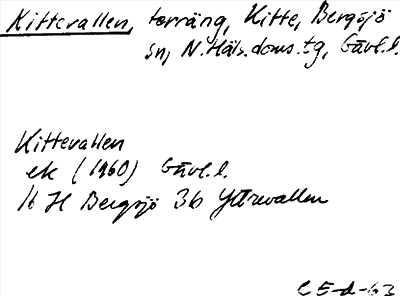 Kittevallen, terräng, Kitte, Bergsjö
sn, N. Häls. doms. tg, Gävl. l.
Kittevallen
ek (1960) Gävl. l.
16 H Bergsjö 3b Yttrevallen
CE-d-63